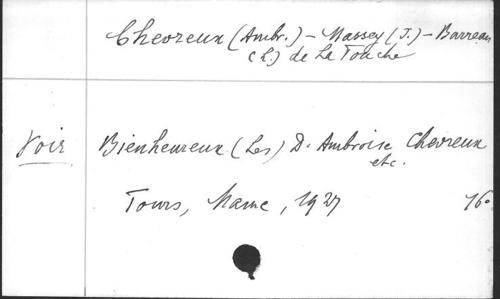 Chevreux (Ambr.) - Massey (J.) - Barreau
(L.) de La Touche
Voir Bienheureux (Les) D. Ambroise Chevreux
etc.
Tours, Mame, 1927 16°